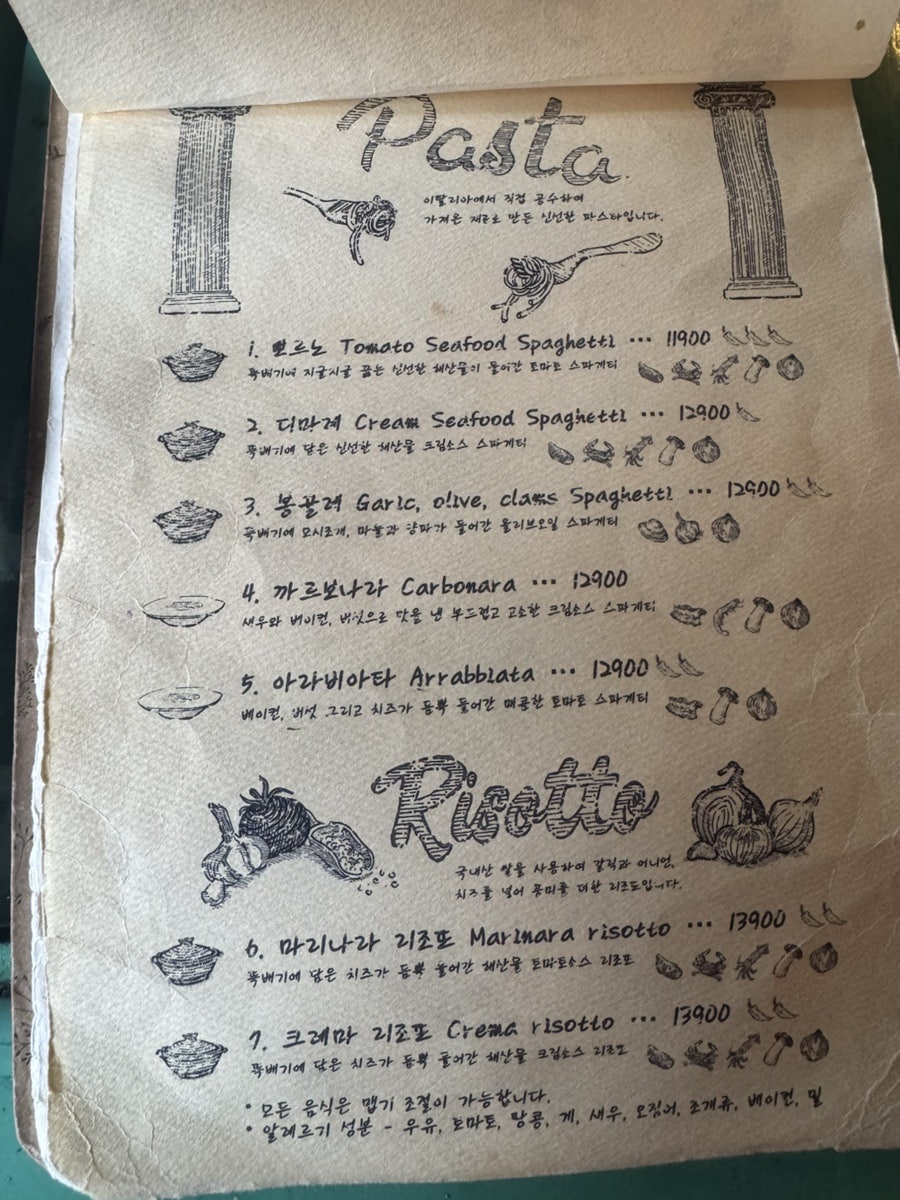 Pasta.
이탈리아에서 직접 공수하여
가져온 재료로 만든 신선한 파스타입니다.
1. 뽀르노 Tomato Seafood Spaghetti ··· 11900
뚝배기에 지글지글 끓는 신선한 해산물이 들어간 토마토 스파게티
2. 디마레 Cream Seafood Spaghetti ··· 12900
뚝배기에 담은 신선한 해산물 크림소스 스파게티
3. 봉골레 Garlic, olive, clams Spaghetti ··· 12900
뚝배기에 모시조개, 마늘과 양파가 들어간 올리브오일 스파게티
4. 까르보나라 Carbonara ··· 12900
새우와 베이컨, 버섯으로 맛을 낸 부드럽고 고소한 크림소스 스파게티
5. 아라비아타 Arrabbiata ··· 12900
베이컨, 버섯 그리고 치즈가 듬뿍 들어간 매콤한 토마토 스파게티
Risotto
국내산 쌀을 사용하여 갈릭과 어니언,
치즈를 넣어 풍미를 더한 리조또입니다.
6. 마리나라 리조또 Marinara risotto ··· 13900
뚝배기에 담은 치즈가 듬뿍 들어간 해산물 토마토소스 리조또
7. 크레마 리조또 Crema risotto ··· 13900
뚝배기에 담은 치즈가 듬뿍 들어간 해산물 크림소스 리조또
* 모든 음식은 맵기 조절이 가능합니다.
* 알레르기 성분 - 우유, 토마토, 땅콩, 게, 새우, 오징어, 조개류, 베이컨, 밀